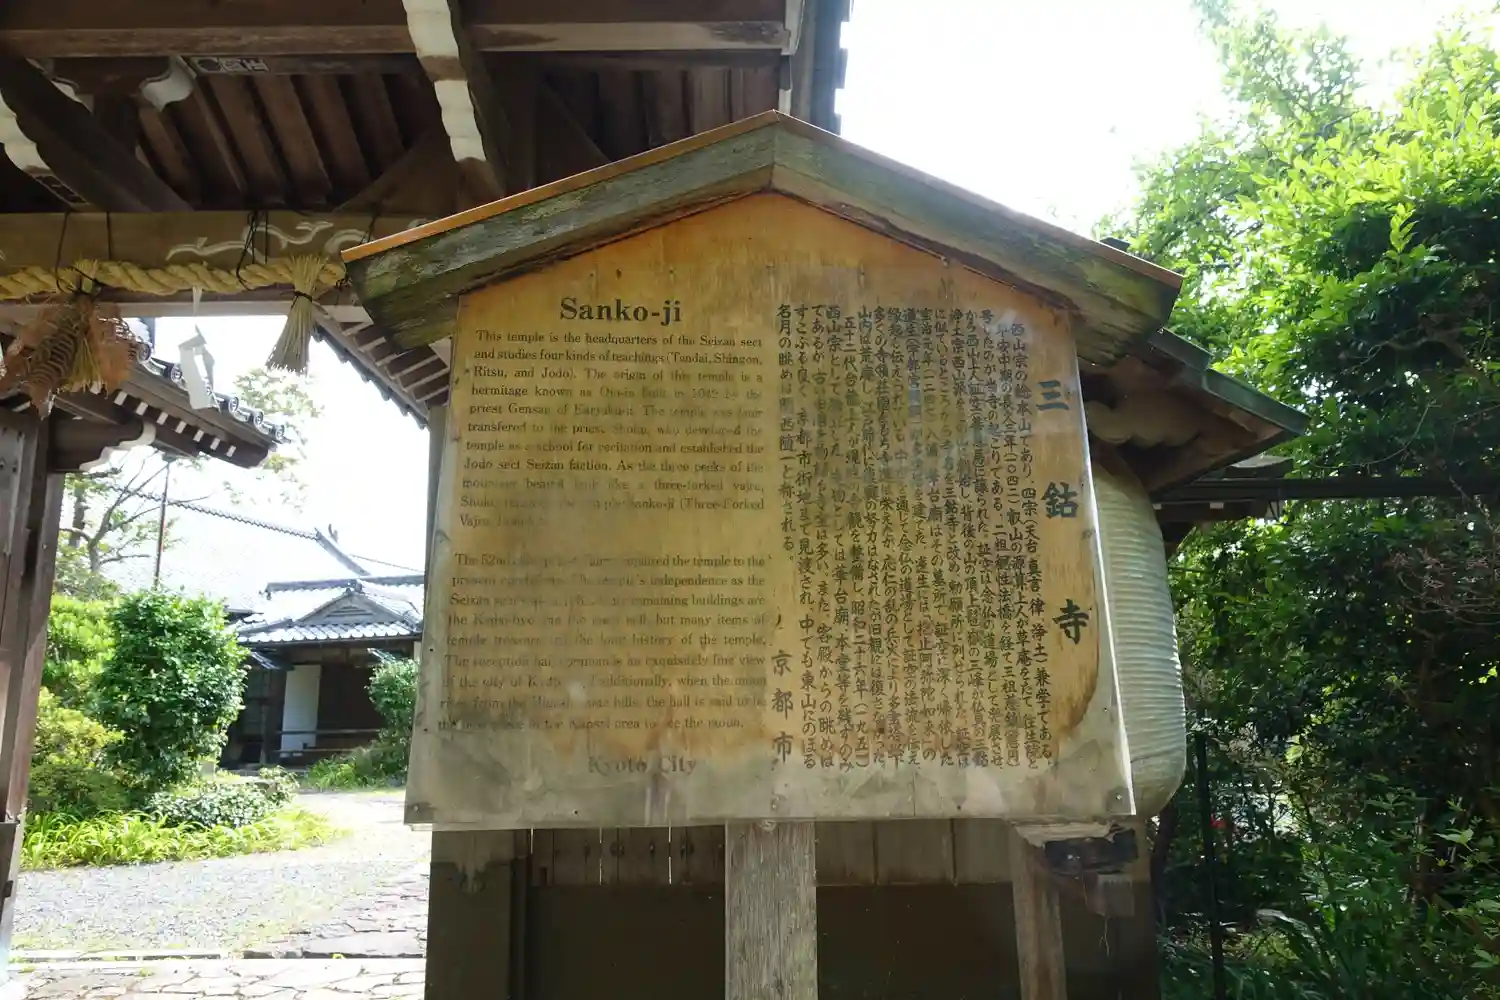 Sanko-ji
This temple is the headquarters of the Seizan sect
and studies four kinds of teachings (Tendai, Shingon,
Ritsu, and Jodo). The origin of this temple is a
hermitage known as built in by the
priest Gensan of The temple was later
transfered to the priest Shoku, who developed the
temple as a school for recitation and established the
Jodo sect Seizan faction. As the three peaks of the
mountain behind look like a three-forked vajra,
Shoku Sanko-ji (Three-Forked
Vajra
The 52nd repaired the temple to the
present The temple's independence as the
Seizan remaining buildings are
the and the main hall, but many items of
temple treasures the long history of the temple.
The reception hall an exquisitely fine view
of the city of additionally, when the moon
rises from the hills, the hall is said to be
the best place in the Kansai area to see the moon.
Kyoto City
三鈷寺
西山宗の総本山であり、四宗(天台、真言、律、浄土)兼学である。
平安中期の長久三年(一〇四二)叡山の源算上人が草庵をたて、往生院と
号したのが当寺の起こりである。二祖観性法橋を経て三祖慈鎮(慈円)
から西山上人証空(善慧房)に譲られた。証空は念仏の道場として発展させ、
浄土宗西山派をこの山に創始し、背後の山の頂上
に似ているところから寺名を三鈷寺と改め、勅願所に列せられた。証空は
宝治元年(一二四七)入滅、華台廟はその墓所で、証空に深く帰依した
道生(宇都宮 を建てた。道生には、抱止阿弥陀如来」の
縁起も伝えられている。中世を通じて念仏の道場として証空の法流を伝え
多くの寺領荘園をもち寺運は栄えたが、応仁の乱の兵火により多宝塔以下
山内は荒廃し、江戸期に復興の努力はなされたが旧観には復さなかった。
五十二代台 が現在の景観を整備し、昭和二十六年(一九五一)
西山宗として独立した。建物としては華台廟、本堂等を残すのみ
であるが、古い由緒を物語る寺宝は多い。また、客殿からの眺めは
すこぶる良く、京都市街地まで見渡され、中でも東山にのぼる
名月の眺めは「関西随一」と称される。
京都市